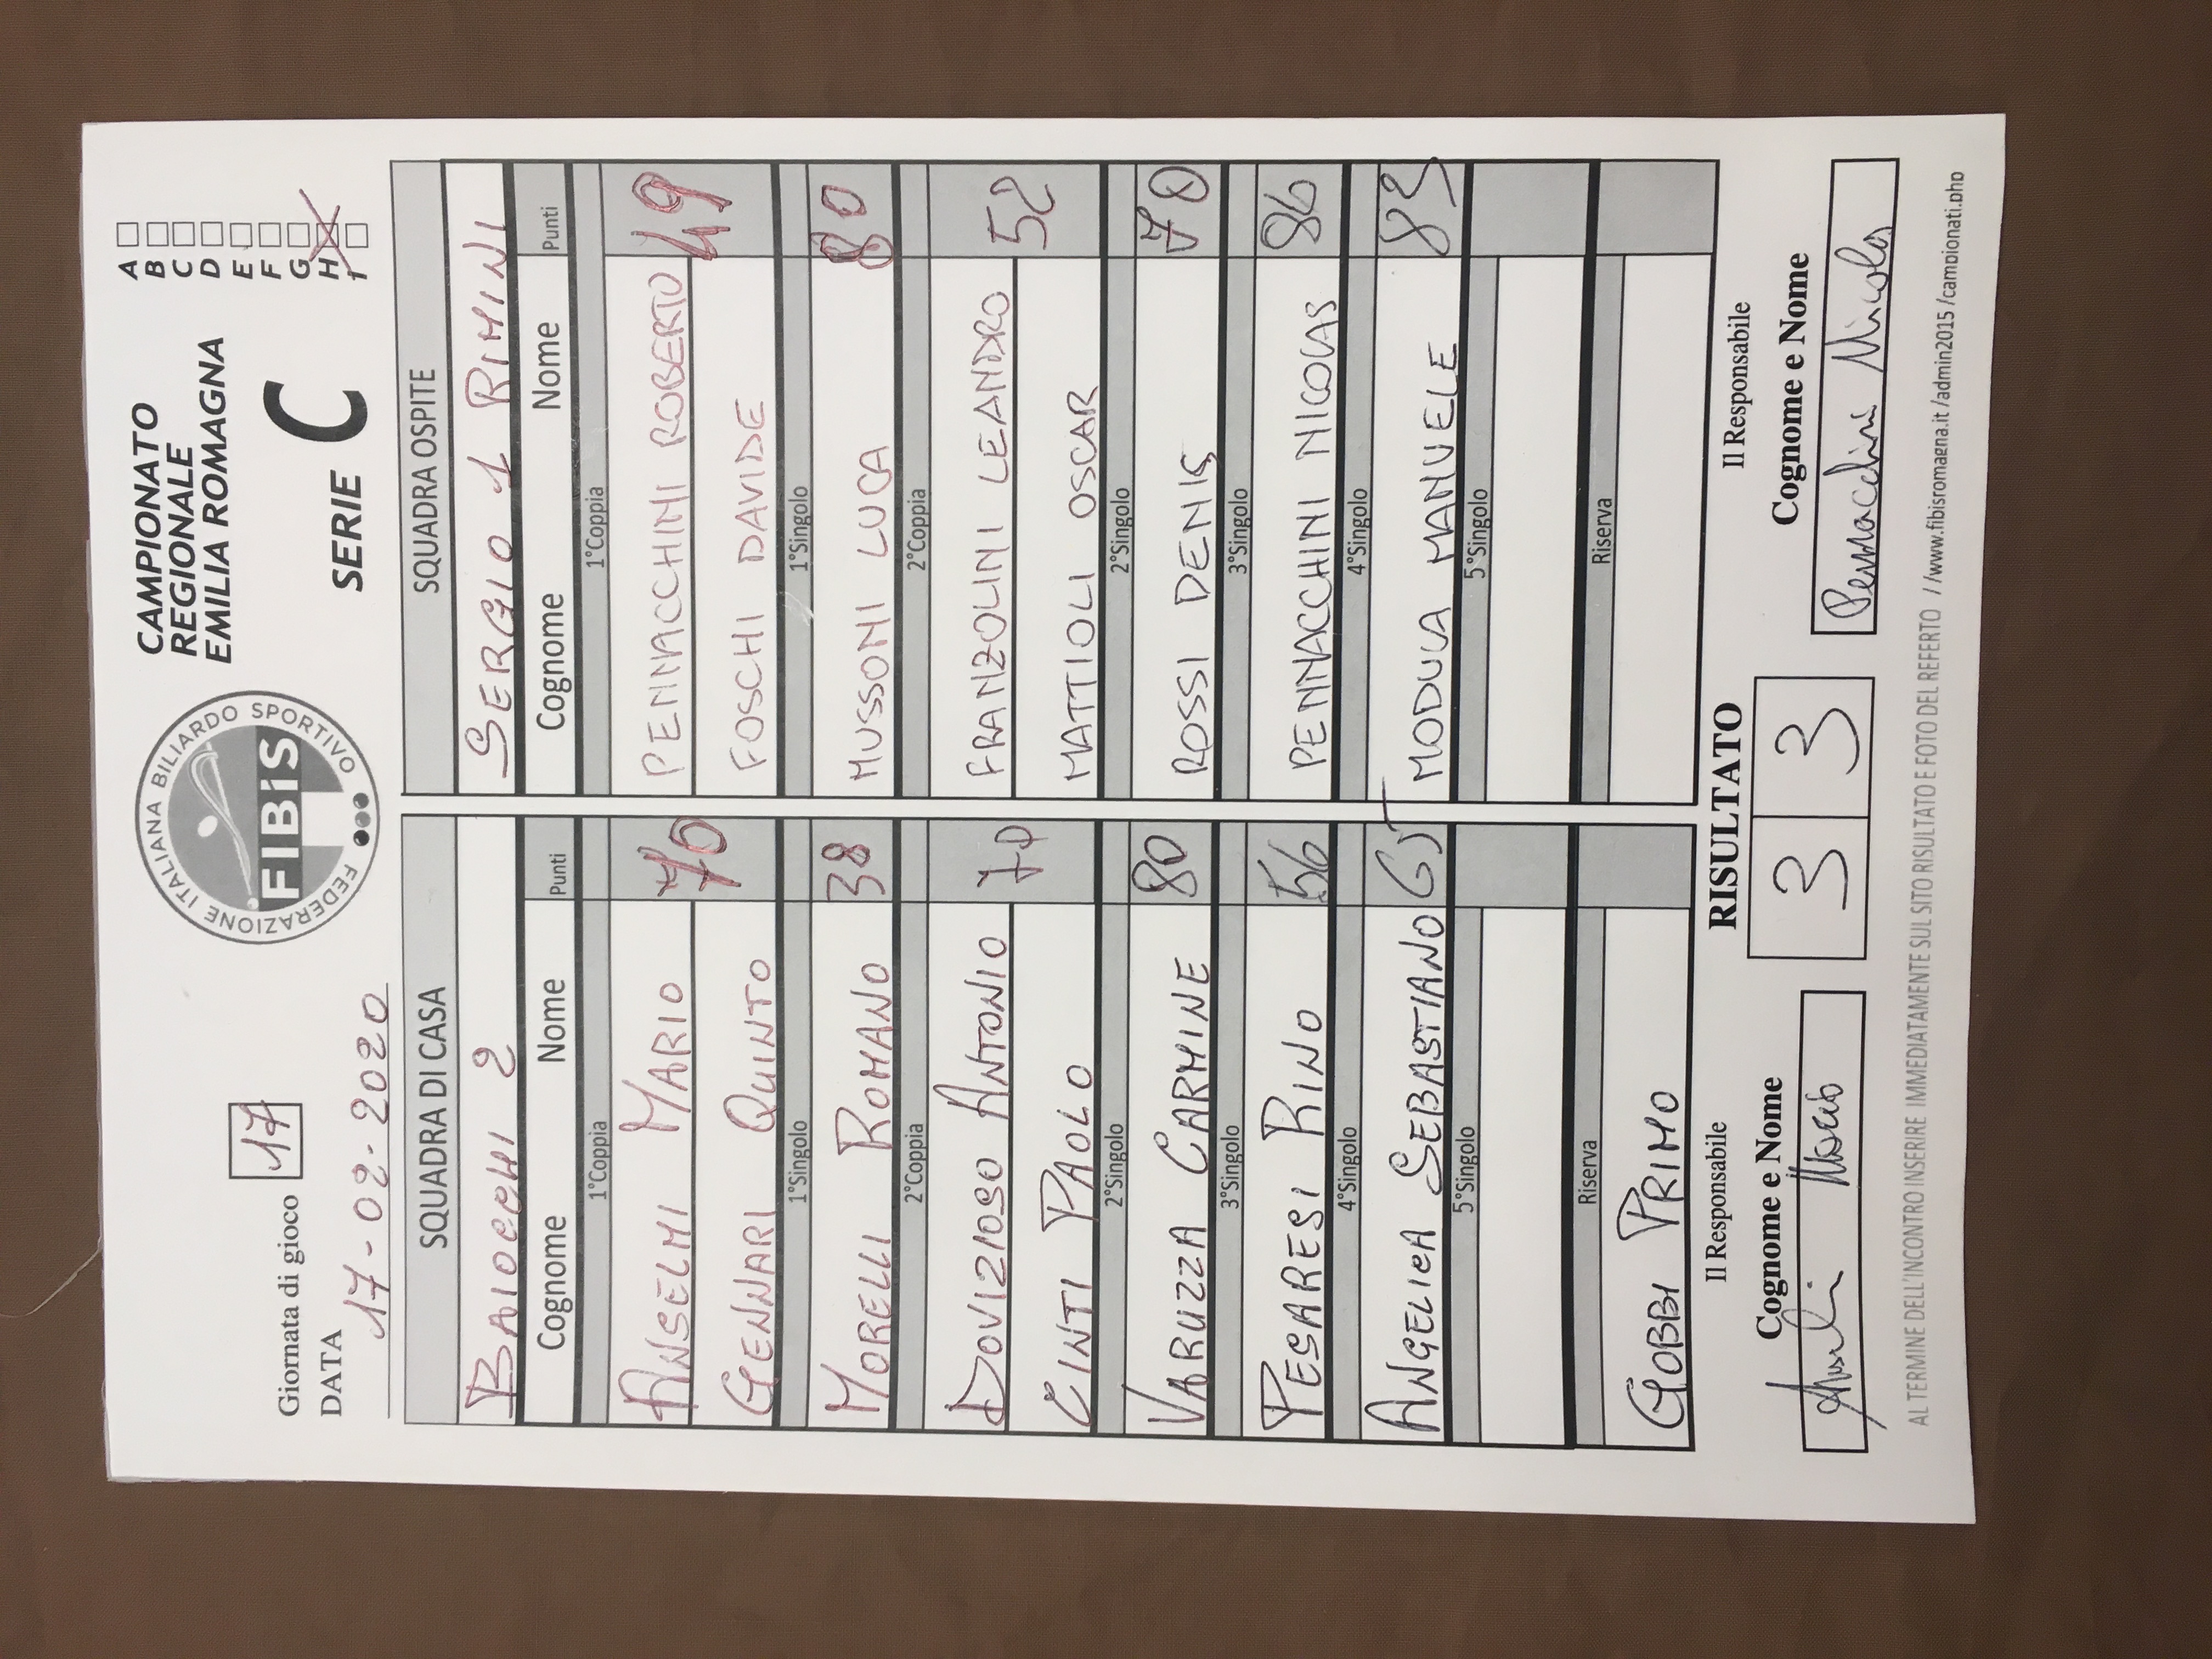 Giornata di gioco 17
DATA
17-02-2020
FEDERAZIONE ITALIANA BILIARDO SPORTIVO
FIBiS
CAMPIONATO
REGIONALE
EMILIA ROMAGNA
SERIE C
A
B
C
D
E
F
G
H
I
SQUADRA DI CASA
BAIOCCHI 2
Cognome Nome Punti
1°Coppia
ANSELMI MARIO 70
GENNARI QUINTO
1°Singolo
MORELLI ROMANO 38
2°Coppia
DOVIZIOSO ANTONIO 70
CINTI PAOLO
2°Singolo
VARUZZA CARMINE 80
3°Singolo
PESARESI RINO 56
4°Singolo
ANGELICA SEBASTIANO 65
5°Singolo
Riserva
GOBBI PRIMO
SQUADRA OSPITE
SERGIO 1 RIMINI
Cognome Nome Punti
1°Coppia
PENNACCHINI ROBERTO 49
FOSCHI DAVIDE
1°Singolo
MUSSONI LUCA 80
2°Coppia
FRANZOLINI LEANDRO 52
MATTIOLI OSCAR
2°Singolo
ROSSI DENIS 70
3°Singolo
PENNACCHINI NICOLAS 86
4°Singolo
MODULA MANUELE 83
5°Singolo
Riserva
Il Responsabile
Cognome e Nome
Anselmi Mario
RISULTATO
3 3
Il Responsabile
Cognome e Nome
Pennacchini Nicolas
AL TERMINE DELL'INCONTRO INSERIRE IMMEDIATAMENTE SUL SITO RISULTATO E FOTO DEL REFERTO //www.fibisromagna.it /admin2015 /campionati.php